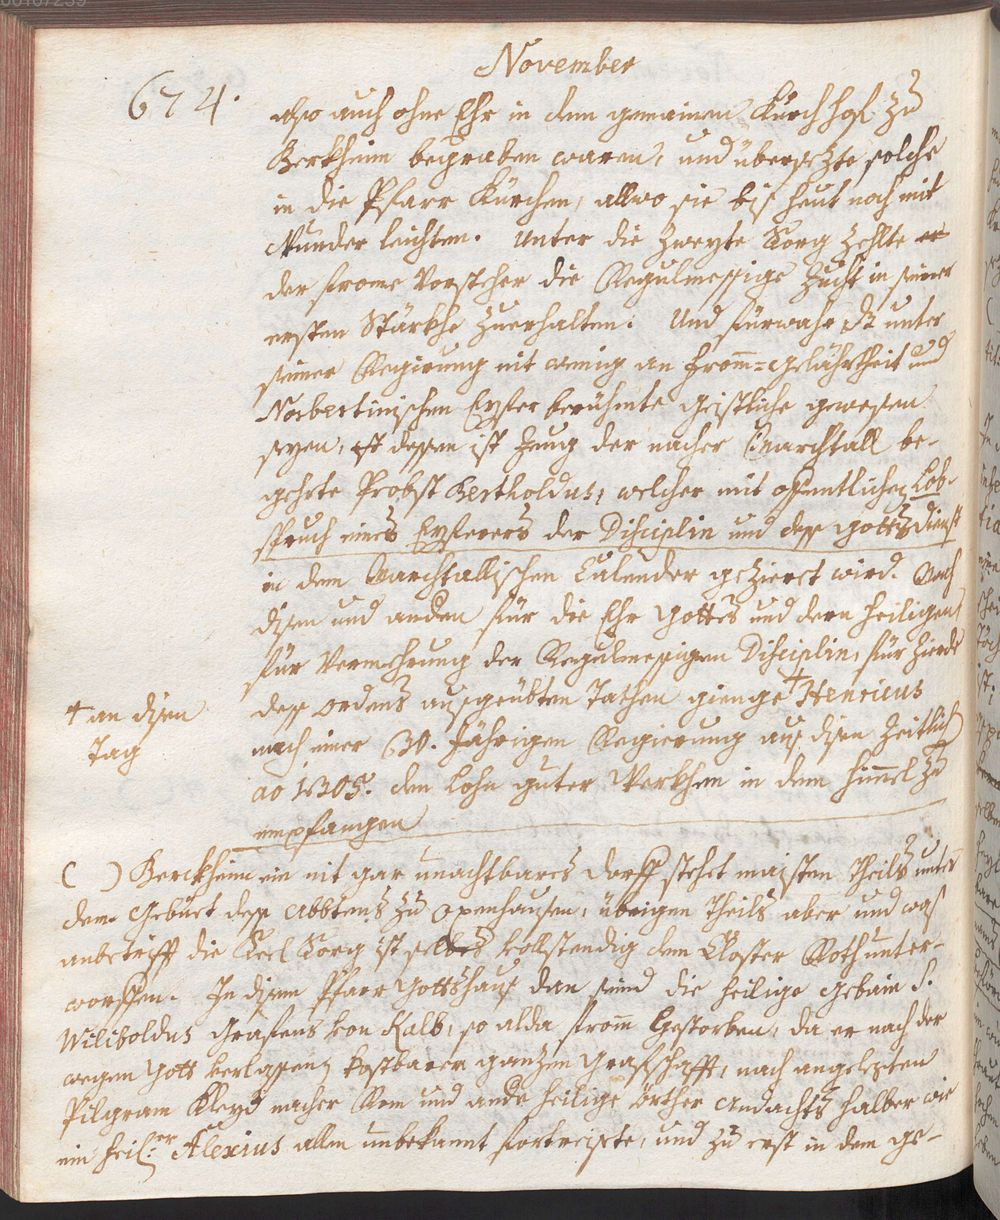 November
674.
also auch ohne Ehr in dem gemainen Kürchhof zu
Berkheim begraben waren, und übersezte solche
in die Pfarr Kürchen, allwo sie biß heut noch mit
Wunder leichten. Unter die zweyte Sorg zehlte er
der frome Vorsteher die Regulmessige Zucht in seiner
ersten Stärkhe zuerhalten. Und fürwahr dz unter
seiner Regirung nit wenig an from= gelährtheit und
Norbertinischen Eyfer berühmte geistliche gewesen
seyen, dessen ist Zeug der nacher Marchtall be-
gehrte Probst Bertholdus, welcher mit offentlichen Lob-
spruch eines Eyferers der Disciplin und deß gottsdienst
in dem Marchtallischen Calender gezieret wird. Nach
disen und anderen für die Ehr Gottes und deren heiligen,
für Vermehrung der Regulmessigen Disciplin, für Zierde
deß ordens außgeübten Tathen gienge + Henricus
+ an disen
Tag
nach einer 30. Jährigen Regierung auß disen Zeitlich
ao 1305. den Lohn guter Werkhen in dem himmel zu
empfangen
( ) Berckheim ein nit gar unachtbares dorff stehet maisten Theils unter
dem Gebiet deß Abbtens zu Oxenhausen, übrigen Theils aber und waß
anbetrifft die Seel Sorg ist selbes vollstendig dem Closter Roth unter-
worffen. In disem Pfarr Gottshauß dan seind die heilige gebain S.
Wiliboldus Grafens von Kalb, so alda from gestorben, da er nach der
wegen Gott verlassung kostbarer ganzen Grafschafft, nach angelegten
Pilgram Kleyd nacher Rom und andere heilige örther Andachts halber wie
ein heil:er Alexius allen unbekannt fortreisete, und zu erst in dem ge-